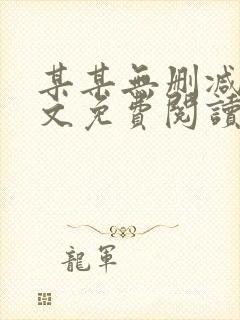 某某無删减
文免費閱讀
龍軍